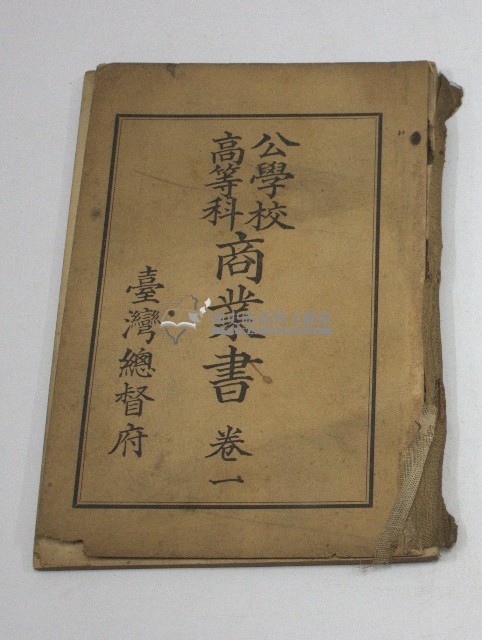 公學校
高等科
商業書 卷一
臺灣總督府